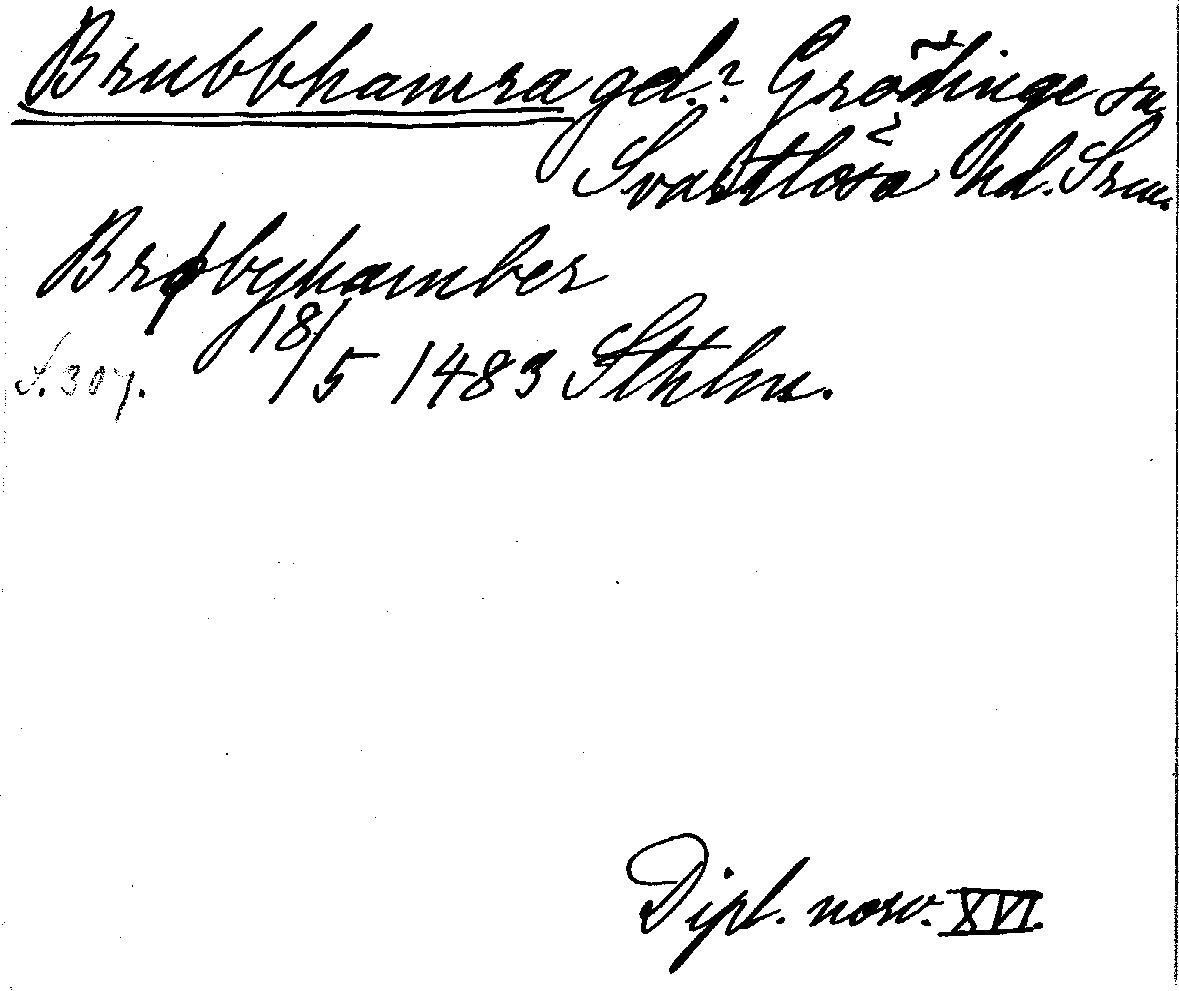 Brubbhamra gd.? Grödinge sn,
Svartlösa hd. Srm.
Brøbyhamber
S. 307. 18/5 1483 Sthlm.
Dipl. norv. XVI.